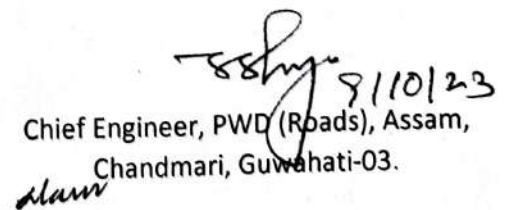 9/10/23
Chief Engineer, PWD (Roads), Assam,
Chandmari, Guwahati-03.